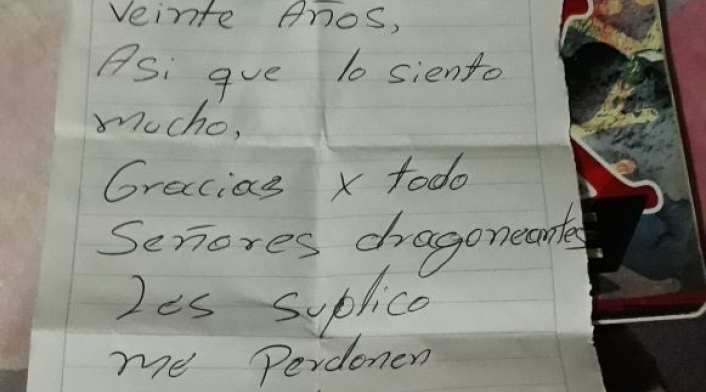 Veinte Años,
Asi que lo siento
mucho,
Gracias x todo
Señores dragoneantes
Les suplico
me Perdonen